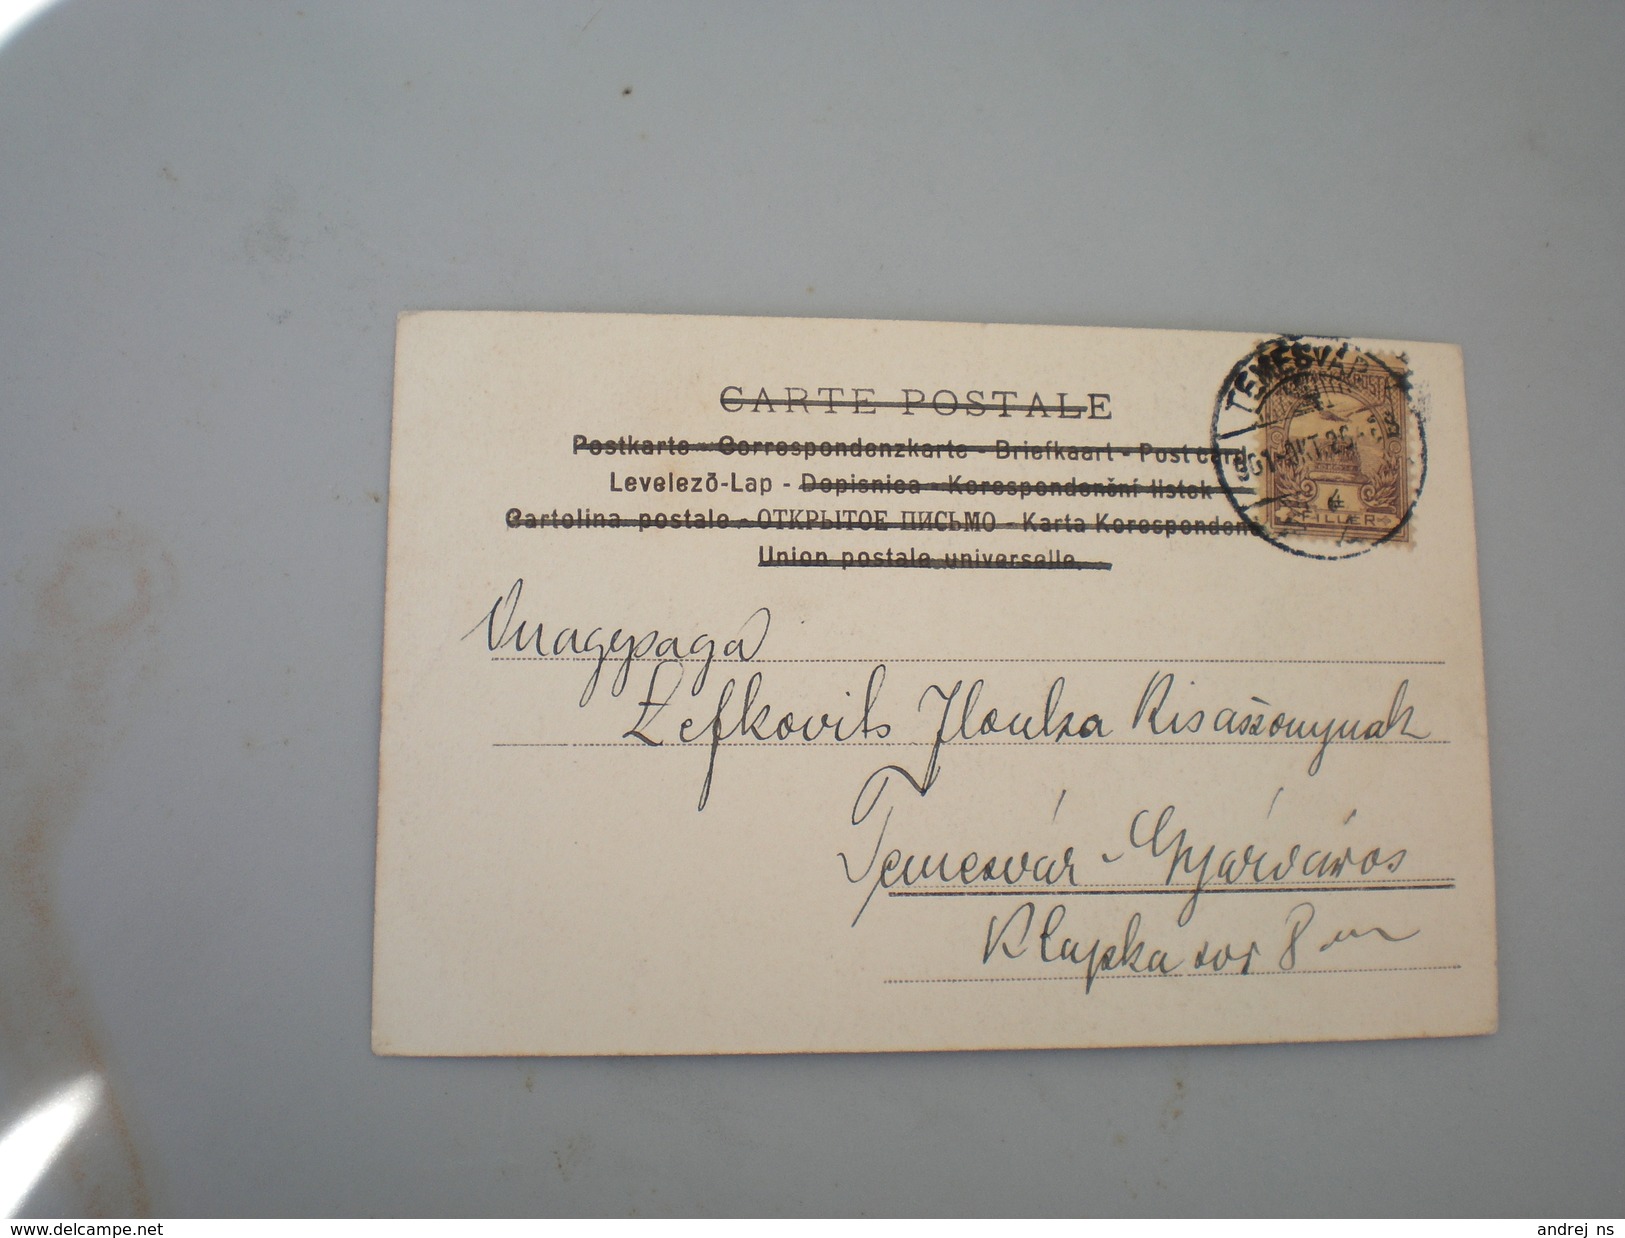 CARTE POSTALE
Postkarte - Correspondenzkarte - Briefkaart - Post card
Levelezō-Lap - Dopisnica - Korespondenční listek
Cartolina postale - ОТКРЫТОЕ ПИСЬМО - Karta Korespondenc
Union postale universelle.
TEMESVÁR
901 OKT. 26
POSTA
4
FILLÉR
Nagysága
Lefkovits Ilonka Kisasszonynak
Temesvár - Gyárváros
Klapka sor 8
www.delcampe.net
andrej_ns